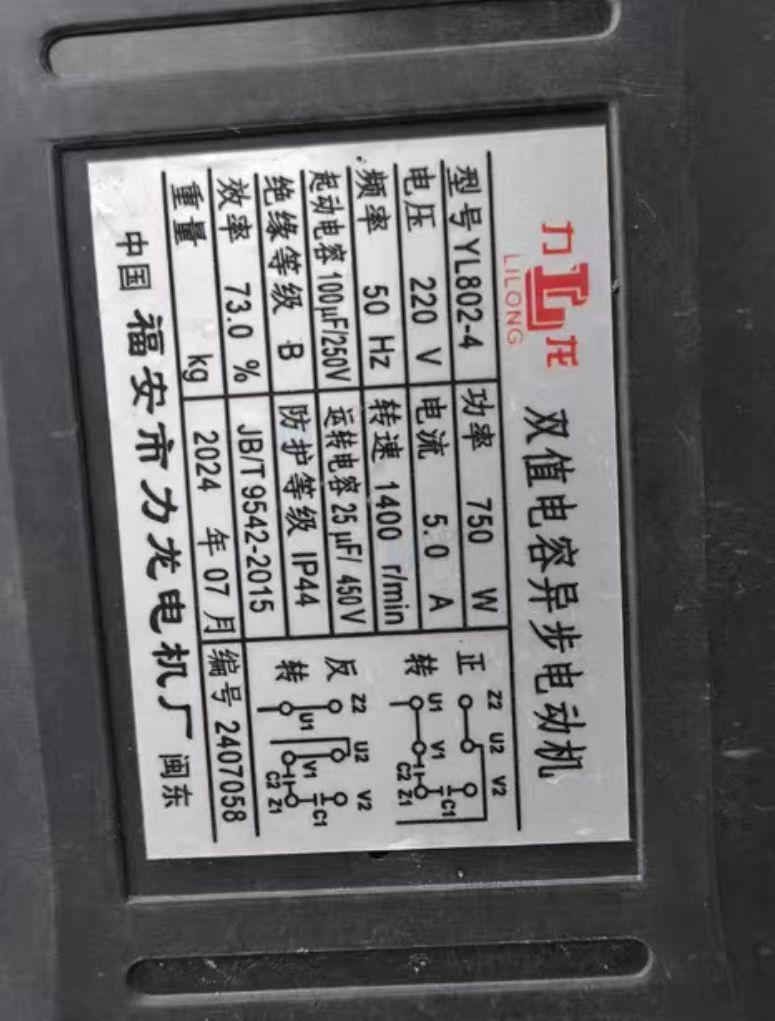 力L龙
LILONG
双值电容异步电动机
型号 YL802-4 功率 750 W
电压 220 V 电流 5.0 A
频率 50 Hz 转速 1400 r/min
起动电容 100μF/250V 运转电容 25μF/450V
绝缘等级 B 防护等级 IP44
效率 73.0 % JB/T 9542-2015
重量 kg 2024 年 07 月 编号 2407058
正转
Z2 U2 V2
U1 V1 C1
C2 Z1
反转
Z2 U2 V2
U1 V1 C1
C2 Z1
中国 福安市力龙电机厂 闽东